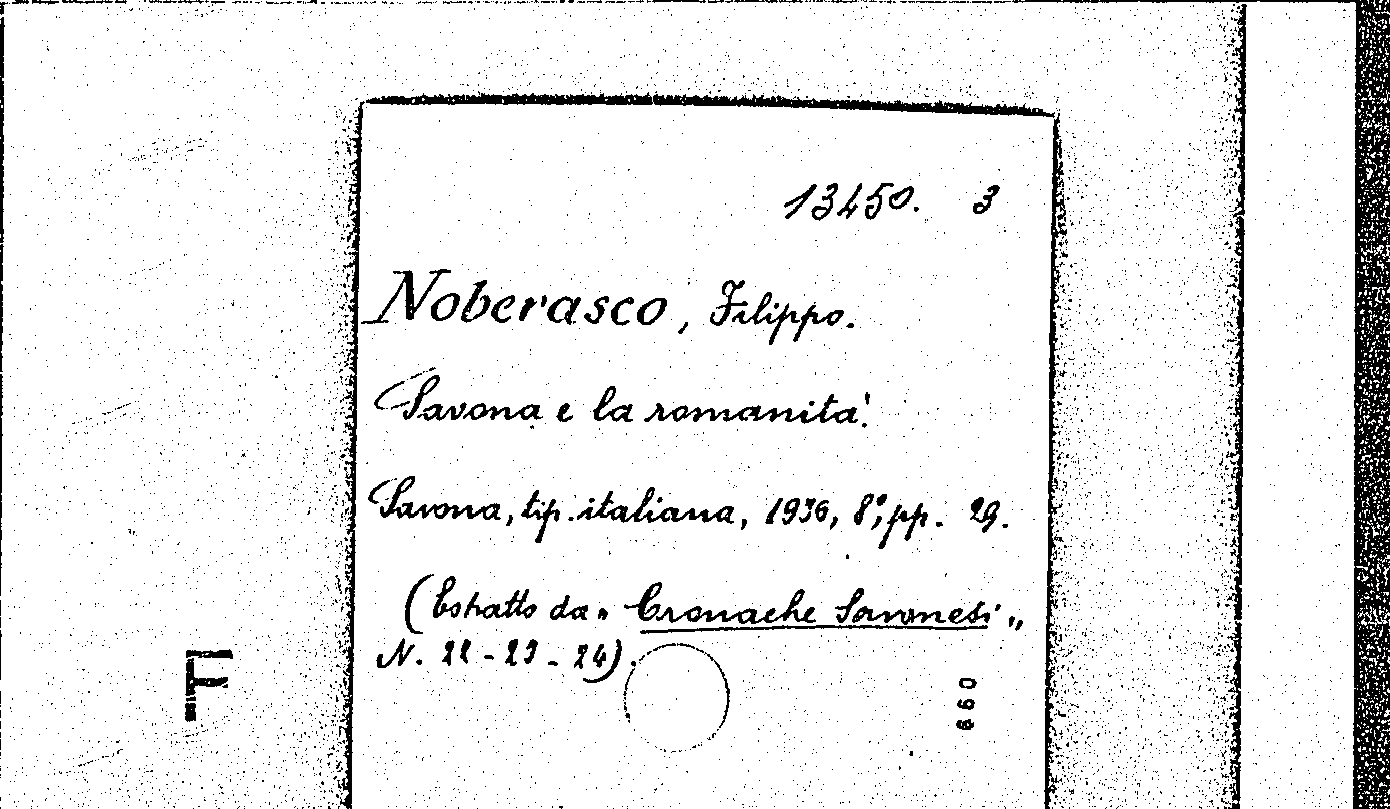 13450. 3
Noberasco, Filippo.
Savona e la romanità.
Savona, tip. italiana, 1936, 8°, pp. 29.
(Estratto da „ Cronache Savonesi „
N. 22 - 23 - 24).
F